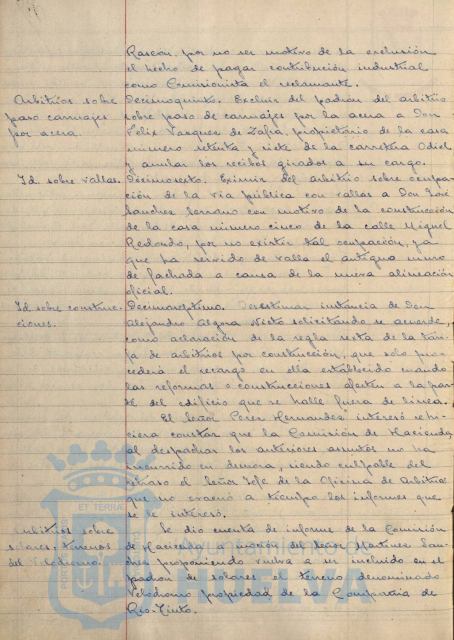 Rascon, por no ser motivo de la exclusión
el hecho de pagar contribución industrial
como Comisionista el reclamante.
Arbitrios sobre
paso carruajes
por acera.
Decimoquinto. Excluir del padrón del arbitrio
sobre paso de carruajes por la acera a Don
Felix Vazquez de Zafra, propietario de la casa
numero setenta y siete de la carretera Odiel
y anular los recibos girados a su cargo.
Id. sobre vallas.
Decimosexto. Eximir del arbitrio sobre ocupa-
ción de la via pública con vallas a Don José
Sanchez Serrano con motivo de la construcción
de la casa numero cinco de la calle Miguel
Redondo, por no existir tal ocupación, ya
que ha servido de valla el antiguo muro
de fachada a causa de la nueva alineación
oficial.
Id. sobre construc-
ciones.
Decimoseptimo. Desestimar instancia de Don
Alejandro Algora Nieto solicitando se acuerde,
como aclaración de la regla sexta de la tari-
fa de arbitrios por construcción, que solo pro-
cederá el recargo en ella establecido cuando
las reformas o construcciones afecten a la par-
te del edificio que se halle fuera de linea.
El Señor Perez Hernandez interesó se hi-
ciera constar que la Comisión de Hacienda,
al despachar los anteriores asuntos no ha
incurrido en demora, siendo culpable del
retraso el Señor Jefe de la Oficina de Arbitrios
que no evacuó a tiempo los informes que
se le interesó.
Arbitrios sobre
solares: terrenos
del Velodromo.
Se dio cuenta de informe de la Comisión
de Hacienda a moción del Señor Martinez San-
chez proponiendo vuelva a ser incluido en el
padrón de solares el terreno denominado
Velodromo propiedad de la Compañia de
Rio-Tinto.
ET TERRAE
Ayuntamiento de
HUELVA